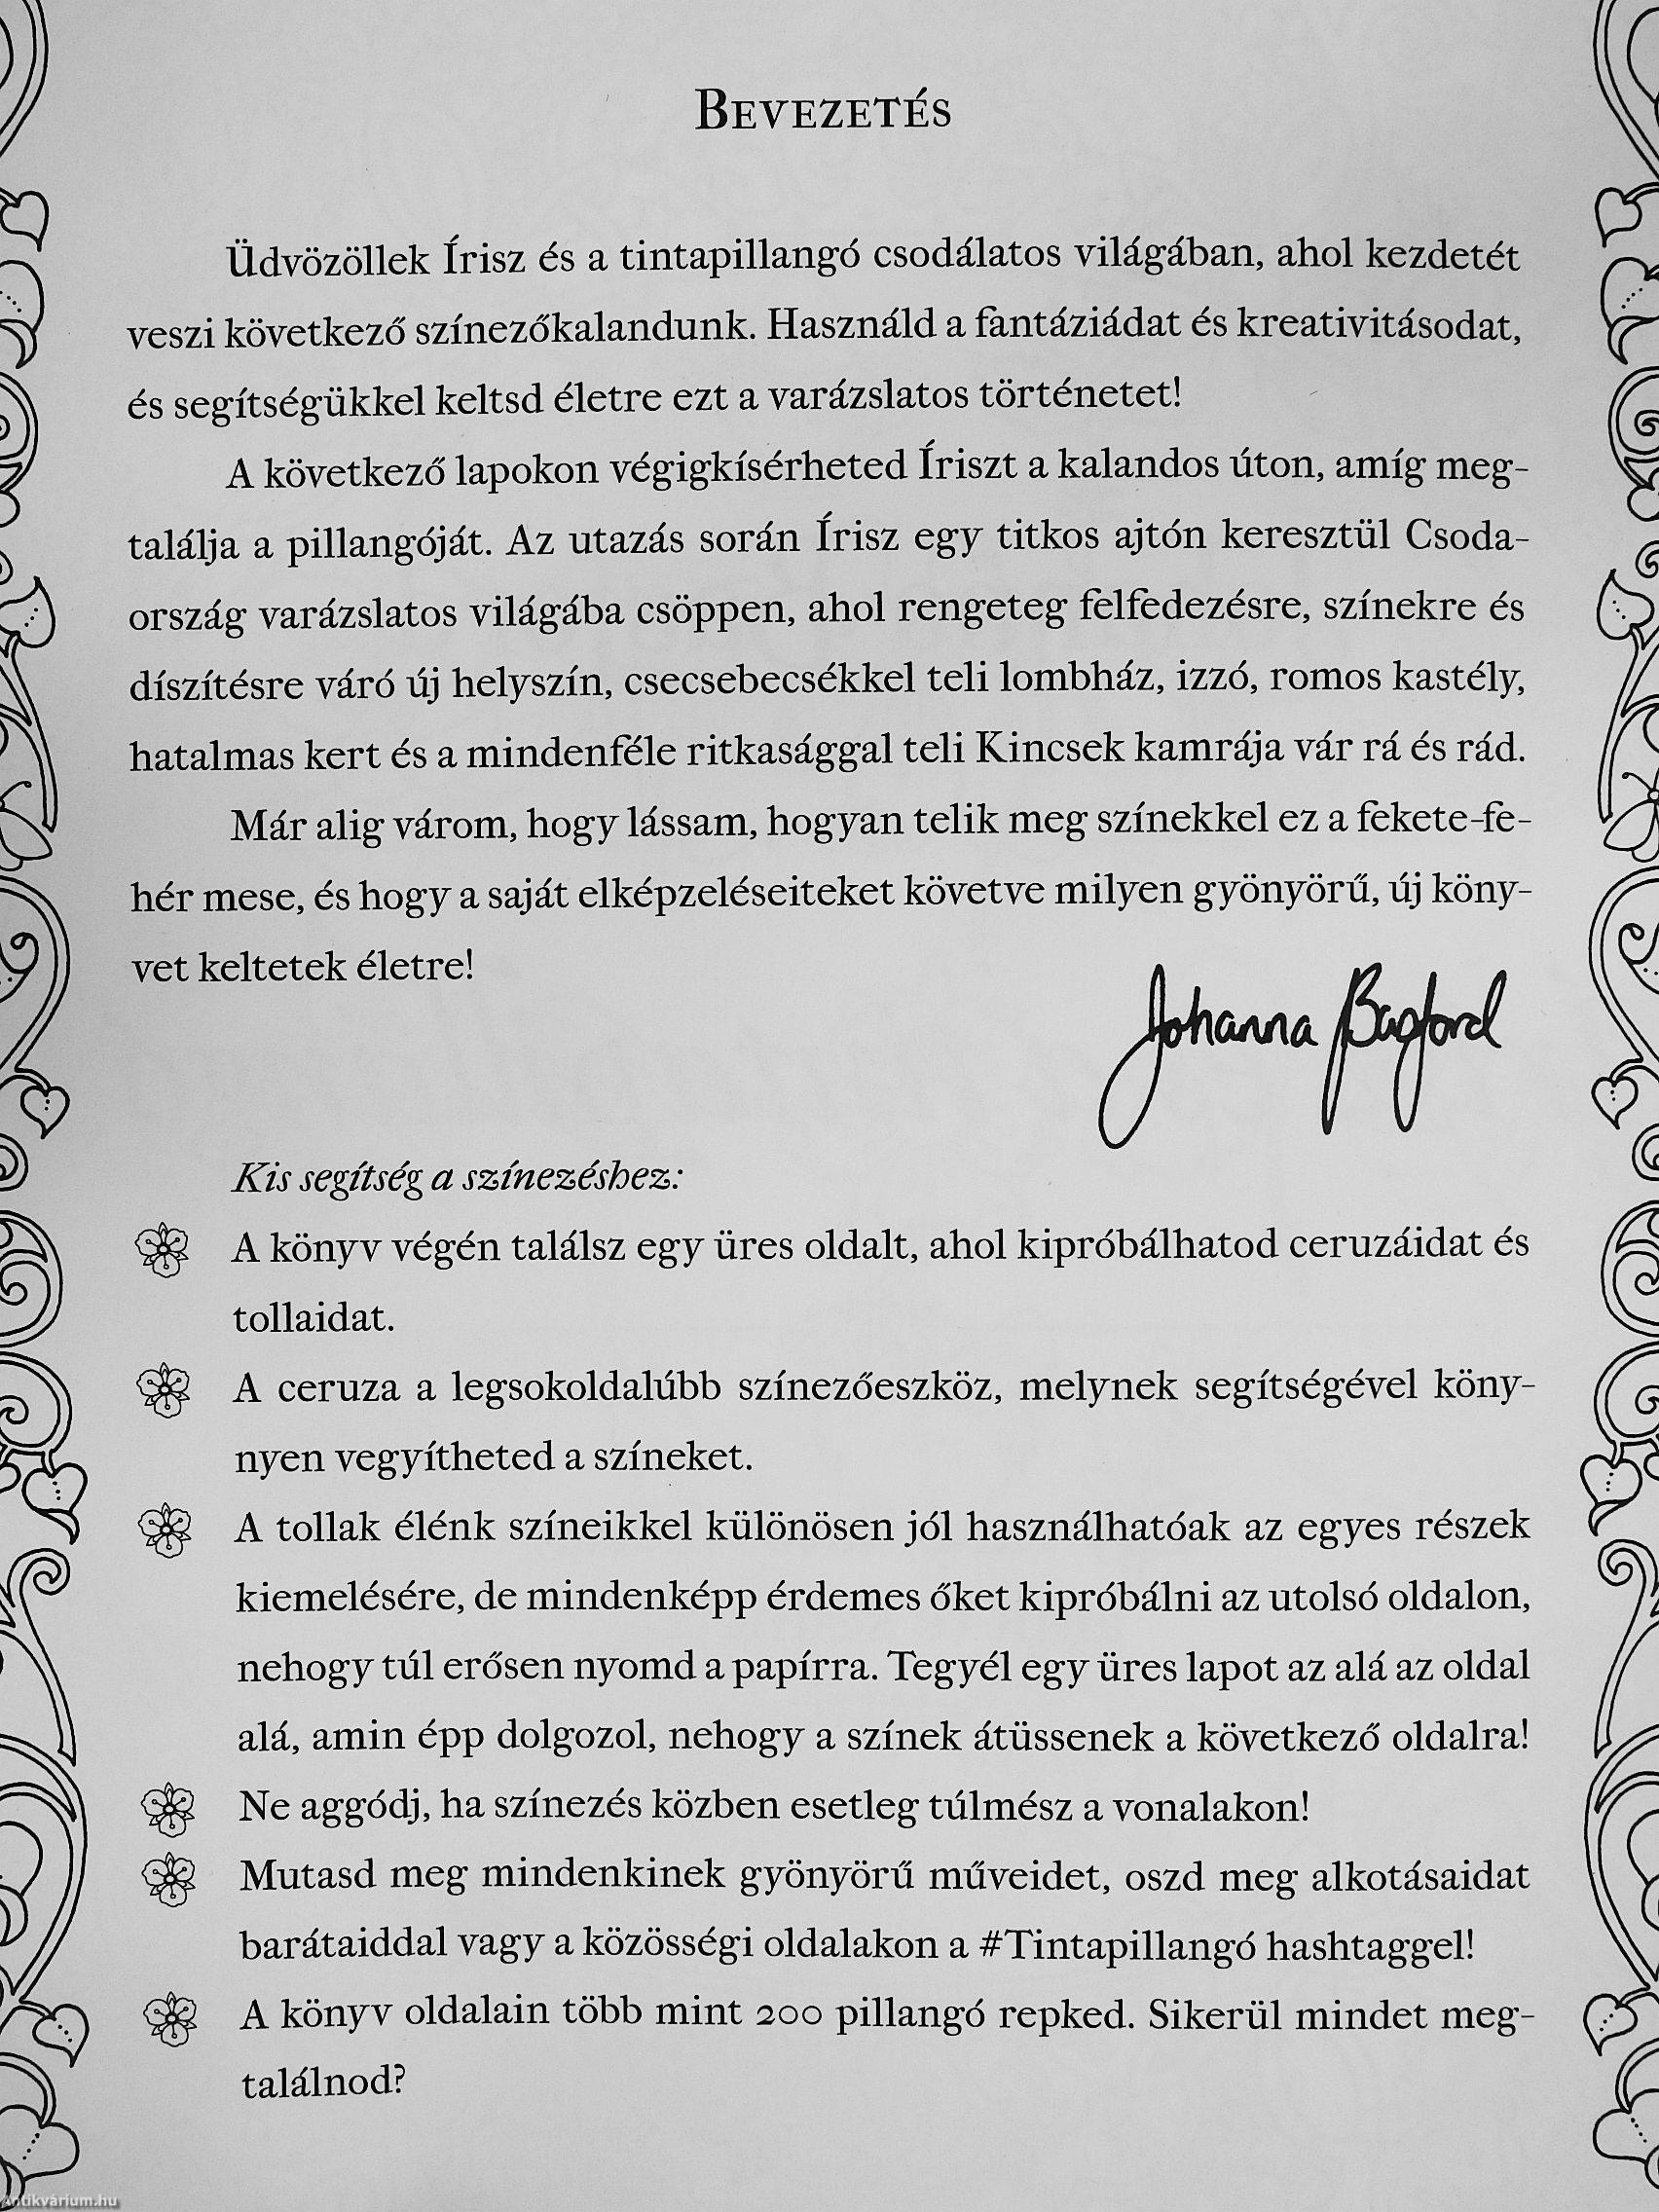 BEVEZETÉS
Üdvözöllek Írisz és a tintapillangó csodálatos világában, ahol kezdetét
veszi következő színezőkalandunk. Használd a fantáziádat és kreativitásodat,
és segítségükkel keltsd életre ezt a varázslatos történetet!
A következő lapokon végigkísérheted Íriszt a kalandos úton, amíg meg-
találja a pillangóját. Az utazás során Írisz egy titkos ajtón keresztül Csoda-
ország varázslatos világába csöppen, ahol rengeteg felfedezésre, színekre és
díszítésre váró új helyszín, csecsebecsékkel teli lombház, izzó, romos kastély,
hatalmas kert és a mindenféle ritkasággal teli Kincsek kamrája vár rá és rád.
Már alig várom, hogy lássam, hogyan telik meg színekkel ez a fekete-fe-
hér mese, és hogy a saját elképzeléseiteket követve milyen gyönyörű, új köny-
vet keltetek életre!
Johanna Basford
Kis segítség a színezéshez:
A könyv végén találsz egy üres oldalt, ahol kipróbálhatod ceruzáidat és
tollaidat.
A ceruza a legsokoldalúbb színezőeszköz, melynek segítségével köny-
nyen vegyítheted a színeket.
A tollak élénk színeikkel különösen jól használhatóak az egyes részek
kiemelésére, de mindenképp érdemes őket kipróbálni az utolsó oldalon,
nehogy túl erősen nyomd a papírra. Tegyél egy üres lapot az alá az oldal
alá, amin épp dolgozol, nehogy a színek átüssenek a következő oldalra!
Ne aggódj, ha színezés közben esetleg túlmész a vonalakon!
Mutasd meg mindenkinek gyönyörű műveidet, oszd meg alkotásaidat
barátaiddal vagy a közösségi oldalakon a #Tintapillangó hashtaggel!
A könyv oldalain több mint 200 pillangó repked. Sikerül mindet meg-
találnod?
Antikvárium.hu